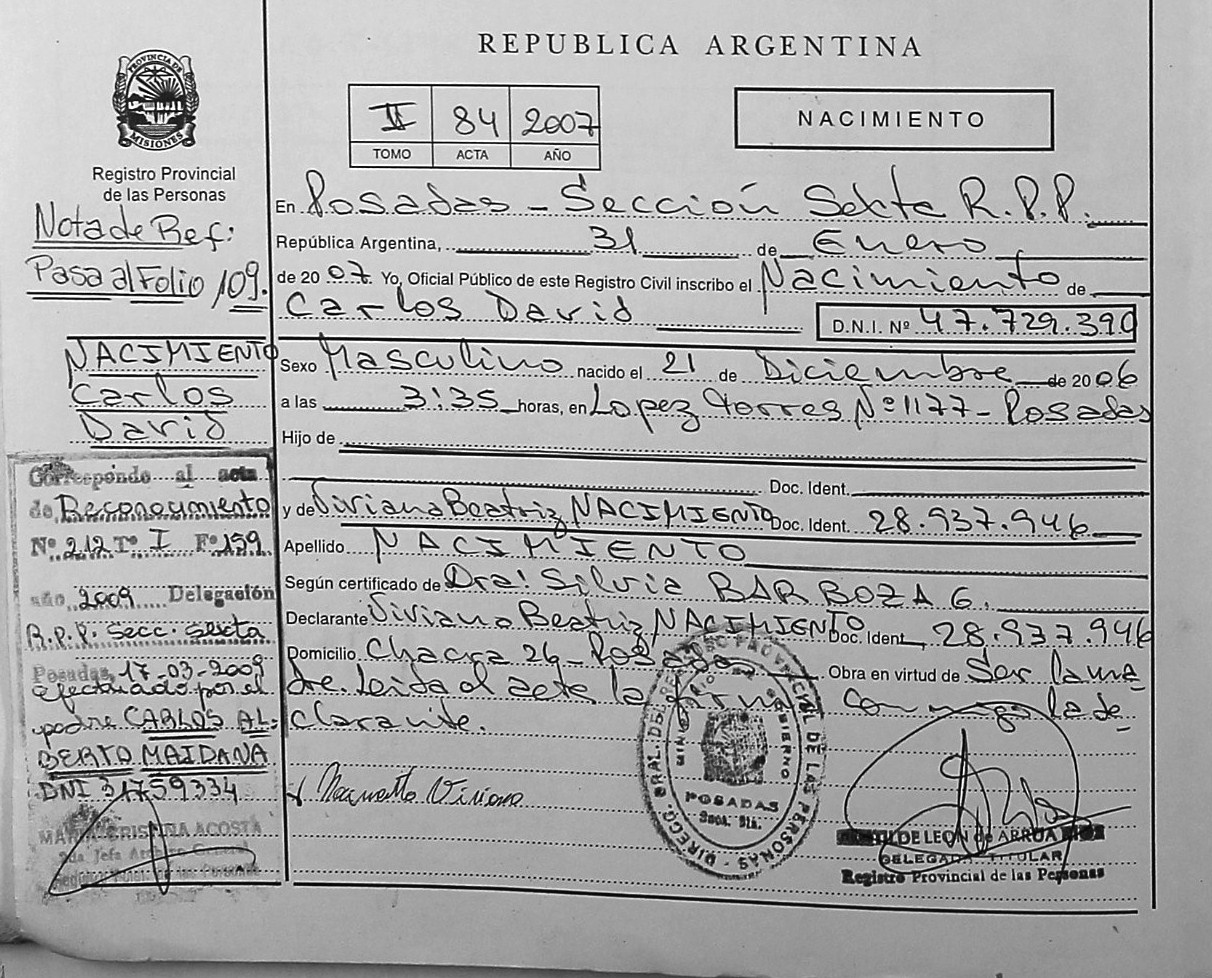 REPUBLICA ARGENTINA
PROVINCIA DE
MISIONES
Registro Provincial
de las Personas
II 84 2007
TOMO ACTA AÑO
NACIMIENTO
Nota de Ref:
Pasa al Folio 109.
NACIMIENTO
Carlos
David
En Posadas - Sección Sexta R.P.P.
República Argentina, 31 de Enero
de 2007. Yo, Oficial Público de este Registro Civil inscribo el Nacimiento de
Carlos David D.N.I. Nº 47.729.390
Sexo Masculino nacido el 21 de Diciembre de 2006
a las 3:35 horas, en Lopez Torres Nº 1177 - Posadas
Hijo de
Doc. Ident.
y de Viviana Beatriz NACIMIENTO Doc. Ident. 28.937.946
Apellido NACIMIENTO
Según certificado de Dra: Silvia BARBOZA G.
Declarante Viviana Beatriz NACIMIENTO Doc. Ident. 28.937.946
Domicilio Chacra 26 - Posadas Obra en virtud de Ser la ma
dre. Leida el acta la firma Conmigo la de
clarante.
Corresponde al acta
de Reconocimiento
Nº 212 Tº I Fº 159
año 2009 Delegación
R.P.P. Secc. Sexta
Posadas, 17-03-2009
efectuado por el
padre CARLOS AL-
BERTO MAIDANA
DNI 31759334
MARIA CRISTINA ACOSTA
DIRECC. GRAL. DEL REGISTRO PROVINCIAL DE LAS PERSONAS
MINISTERIO DE GOBIERNO
POSADAS
Secc. 6ta.
Viviana
DE LEON de ARRUA
DELEGADA TITULAR
Registro Provincial de las Personas